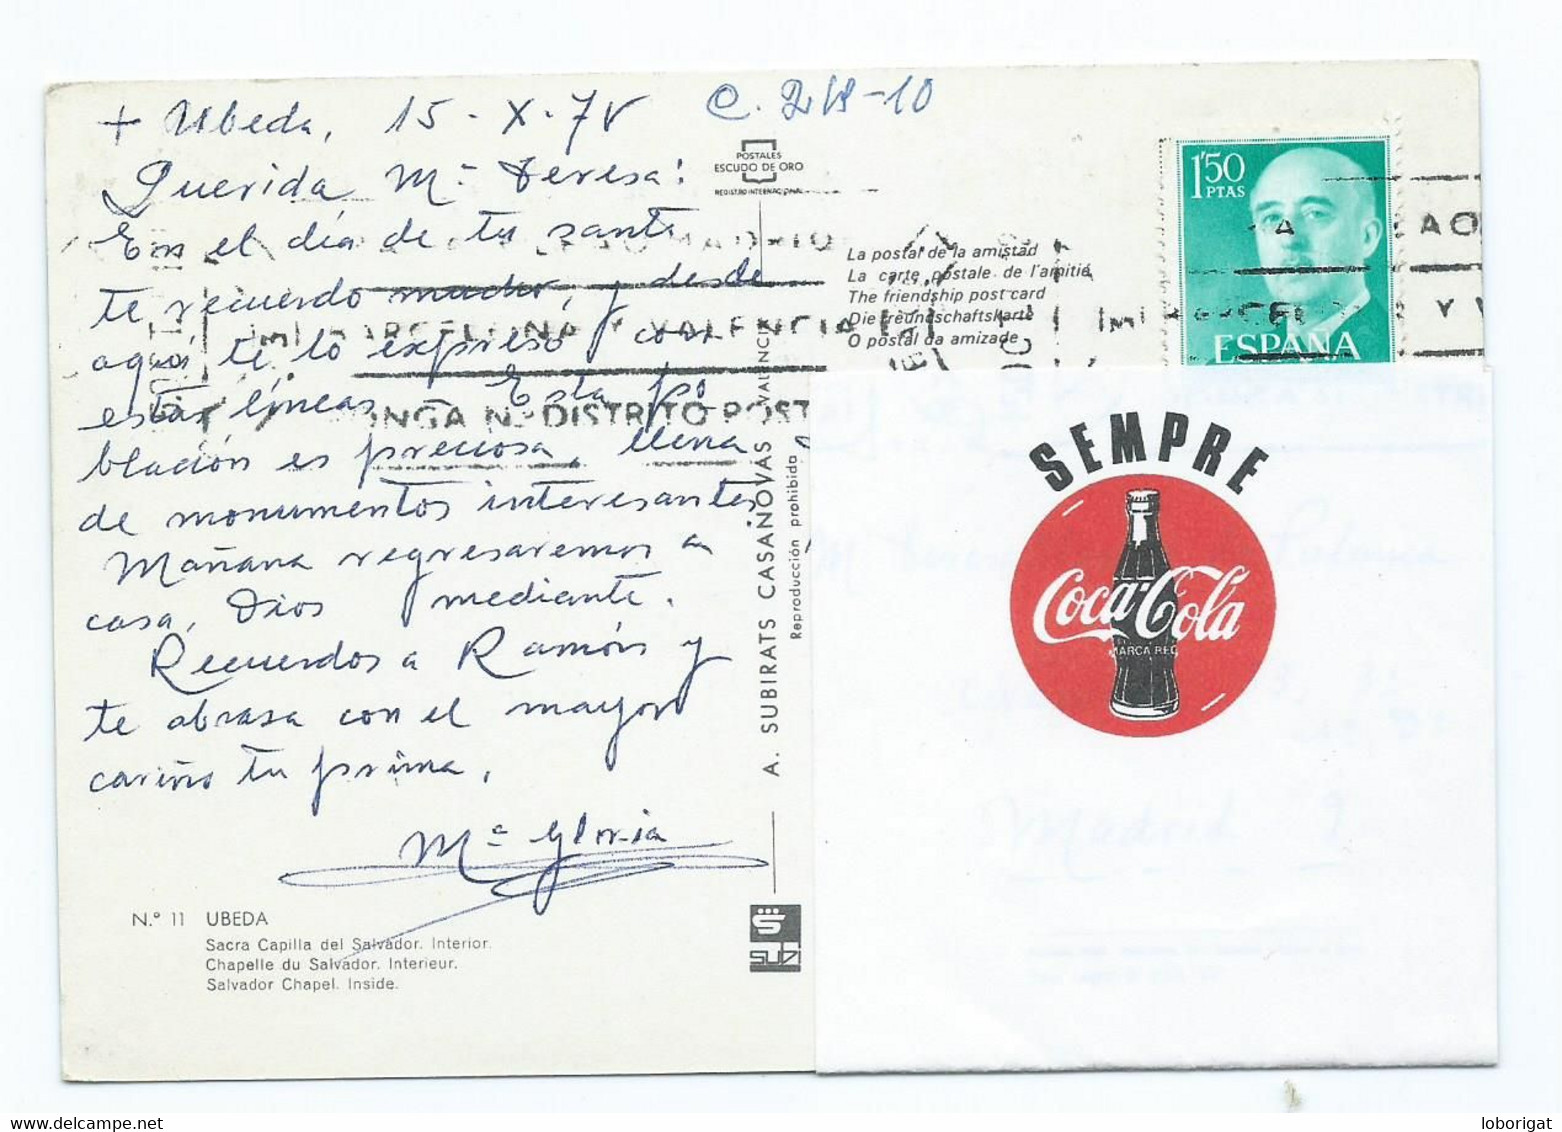 + Ubeda, 15-X-7V
C. 218-10
Querida Mª Teresa:
En el día de tu santo
te recuerdo mucho, y desde
aquí te lo expreso con
estas líneas. Esta po
blación es preciosa, llena
de monumentos interesantes
Mañana regresaremos a
casa, Dios mediante.
Recuerdos a Ramón y
te abrasa con el mayor
cariño tu prima,
Mª Gloria
N.º 11 UBEDA
Sacra Capilla del Salvador. Interior.
Chapelle du Salvador. Interieur.
Salvador Chapel. Inside.
POSTALES
ESCUDO DE ORO
REGISTRO INTERNACIONAL
A. SUBIRATS CASANOVAS VALENCIA
Reproducción prohibida
La postal de la amistad
La carte postale de l'amitié
The friendship post card
Die freundschaftskarte
O postal da amizade
BARCELONA Y VALENCIA
PONGA N.º DISTRITO POST
1'50
PTAS
ESPAÑA
SEMPRE
Coca-Cola
MARCA REG
Madrid 9
loborigat